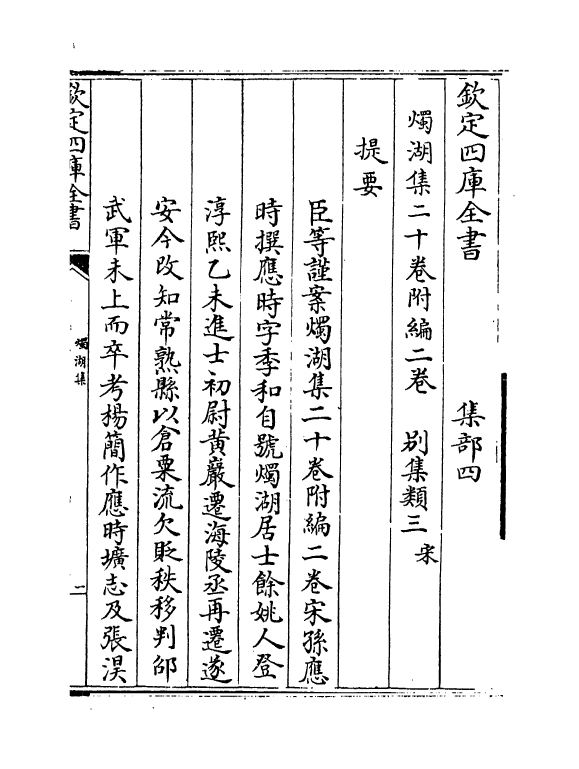 欽定四庫全書　　　集部四
燭湖集二十卷附編二卷　別集類三宋
提要
臣等謹案燭湖集二十卷附編二卷宋孫應
時撰應時字季和自號燭湖居士餘姚人登
淳熙乙未進士初尉黄巖遷海陵丞再遷遂
安令改知常熟縣以倉粟流欠貶秩移判邵
武軍未上而卒考楊簡作應時壙志及張淏
欽定四庫全書
燭湖集
一